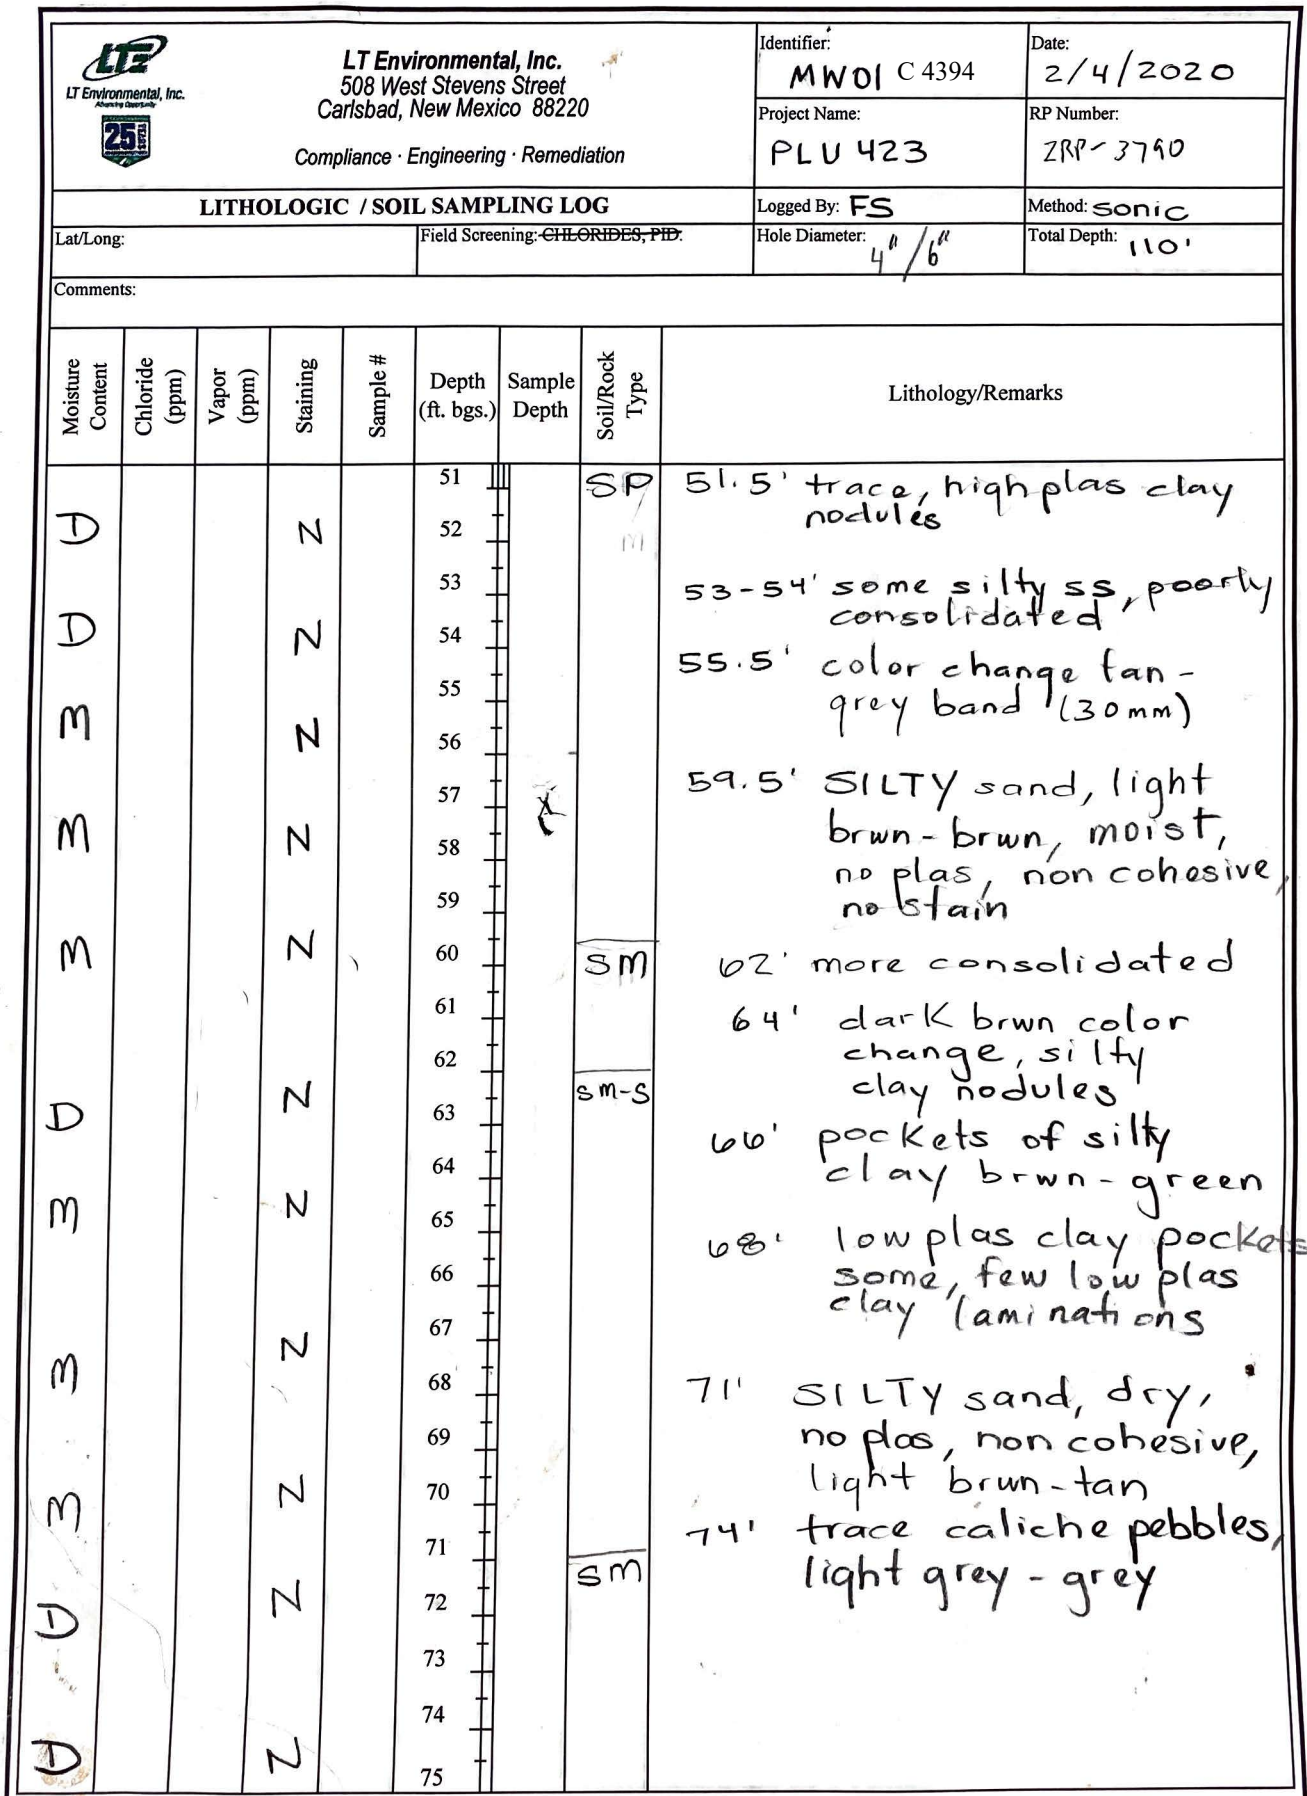 LTE
LT Environmental, Inc.
Advancing Opportunity
25 YEARS
LT Environmental, Inc.
508 West Stevens Street
Carlsbad, New Mexico 88220
Compliance · Engineering · Remediation
Identifier:
MW01 C 4394
Date:
2/4/2020
Project Name:
PLU 423
RP Number:
2RP-3790
LITHOLOGIC / SOIL SAMPLING LOG
Logged By: FS
Method: Sonic
Lat/Long:
Field Screening: CHLORIDES, PID.
Hole Diameter: 4"/6"
Total Depth: 110'
Comments:
Moisture Content
Chloride (ppm)
Vapor (ppm)
Staining
Sample #
Depth (ft. bgs.)
Sample Depth
Soil/Rock Type
Lithology/Remarks
51 SP 51.5' trace, high plas clay
nodules
D N 52 m
53 53-54' some silty ss, poorly
consolidated
D N 54
55 55.5' color change tan-
grey band (30mm)
M N 56
57 59.5' SILTY sand, light
brwn-brwn, moist,
M N 58
no plas, non cohesive,
59 no stain
M N 60 SM 62' more consolidated
61 64' dark brwn color
change, silty
62 clay nodules
D N 63 SM-S
66' pockets of silty
64 clay brwn-green
M N 65 68' low plas clay pockets
66 some, few low plas
clay laminations
67
M N 68 71' SILTY sand, dry,
69 no plas, non cohesive,
light brwn-tan
M N 70
74' trace caliche pebbles,
71 light grey - grey
SM
D N 72
73
74
D N 75